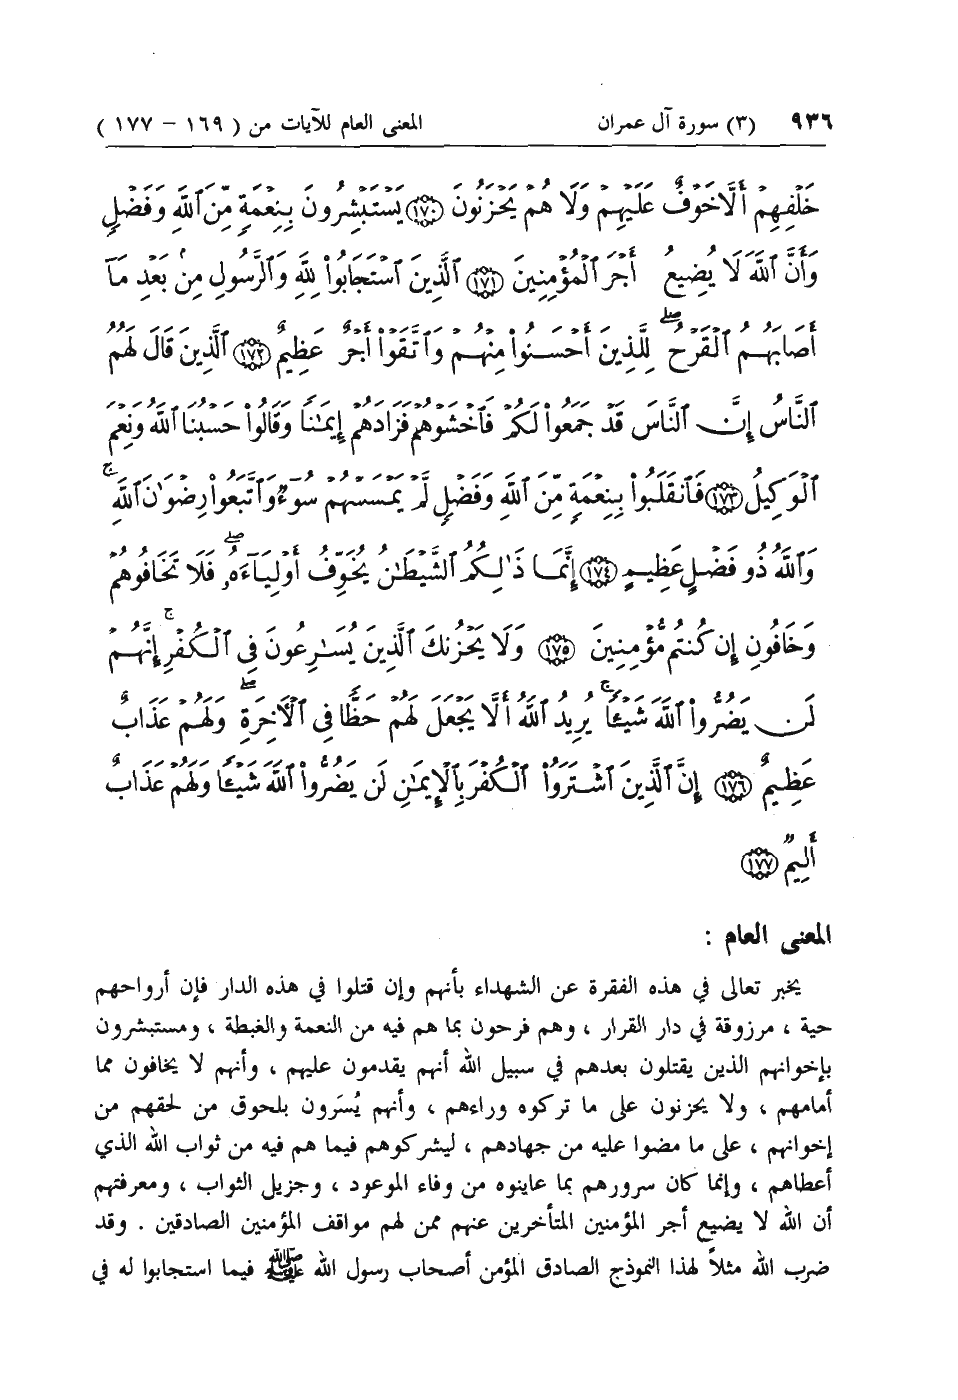 ٩٣٦ (٣) سورة آل عمران المعنى العام للآيات من ( ١٦٩ – ١٧٧ )
خَلْفِهِمْ أَلَّا خَوْفٌ عَلَيْهِمْ وَلَا هُمْ يَحْزَنُونَ ﴿١٧٠﴾ يَسْتَبْشِرُونَ بِنِعْمَةٍ مِّنَ ٱللَّهِ وَفَضْلٍ
وَأَنَّ ٱللَّهَ لَا يُضِيعُ أَجْرَ ٱلْمُؤْمِنِينَ ﴿١٧١﴾ ٱلَّذِينَ ٱسْتَجَابُوا۟ لِلَّهِ وَٱلرَّسُولِ مِنۢ بَعْدِ مَآ
أَصَابَهُمُ ٱلْقَرْحُ ۖ لِلَّذِينَ أَحْسَنُوا۟ مِنْهُمْ وَٱتَّقَوْا۟ أَجْرٌ عَظِيمٌ ﴿١٧٢﴾ ٱلَّذِينَ قَالَ لَهُمُ
ٱلنَّاسُ إِنَّ ٱلنَّاسَ قَدْ جَمَعُوا۟ لَكُمْ فَٱخْشَوْهُمْ فَزَادَهُمْ إِيمَٰنًا وَقَالُوا۟ حَسْبُنَا ٱللَّهُ وَنِعْمَ
ٱلْوَكِيلُ ﴿١٧٣﴾ فَٱنقَلَبُوا۟ بِنِعْمَةٍ مِّنَ ٱللَّهِ وَفَضْلٍ لَّمْ يَمْسَسْهُمْ سُوٓءٌ وَٱتَّبَعُوا۟ رِضْوَٰنَ ٱللَّهِ ۗ
وَٱللَّهُ ذُو فَضْلٍ عَظِيمٍ ﴿١٧٤﴾ إِنَّمَا ذَٰلِكُمُ ٱلشَّيْطَٰنُ يُخَوِّفُ أَوْلِيَآءَهُۥ ۖ فَلَا تَخَافُوهُمْ
وَخَافُونِ إِن كُنتُم مُّؤْمِنِينَ ﴿١٧٥﴾ وَلَا يَحْزُنكَ ٱلَّذِينَ يُسَٰرِعُونَ فِى ٱلْكُفْرِ ۚ إِنَّهُمْ
لَن يَضُرُّوا۟ ٱللَّهَ شَيْـًٔا ۚ يُرِيدُ ٱللَّهُ أَلَّا يَجْعَلَ لَهُمْ حَظًّا فِى ٱلْءَاخِرَةِ ۖ وَلَهُمْ عَذَابٌ
عَظِيمٌ ﴿١٧٦﴾ إِنَّ ٱلَّذِينَ ٱشْتَرَوُا۟ ٱلْكُفْرَ بِٱلْإِيمَٰنِ لَن يَضُرُّوا۟ ٱللَّهَ شَيْـًٔا وَلَهُمْ عَذَابٌ
أَلِيمٌ ﴿١٧٧﴾
المعنى العام :
يخبر تعالى في هذه الفقرة عن الشهداء بأنهم وإن قتلوا في هذه الدار فإن أرواحهم
حية ، مرزوقة في دار القرار ، وهم فرحون بما هم فيه من النعمة والغبطة ، ومستبشرون
بإخوانهم الذين يقتلون بعدهم في سبيل الله أنهم يقدمون عليهم ، وأنهم لا يخافون مما
أمامهم ، ولا يحزنون على ما تركوه وراءهم ، وأنهم يُسَرون بلحوق من لحقهم من
إخوانهم ، على ما مضوا عليه من جهادهم ، ليشركوهم فيما هم فيه من ثواب الله الذي
أعطاهم ، وإنما كان سرورهم بما عاينوه من وفاء الموعود ، وجزيل الثواب ، ومعرفتهم
أن الله لا يضيع أجر المؤمنين المتأخرين عنهم ممن لهم مواقف المؤمنين الصادقين . وقد
ضرب الله مثلاً لهذا النموذج الصادق المؤمن أصحاب رسول الله ﷺ فيما استجابوا له في